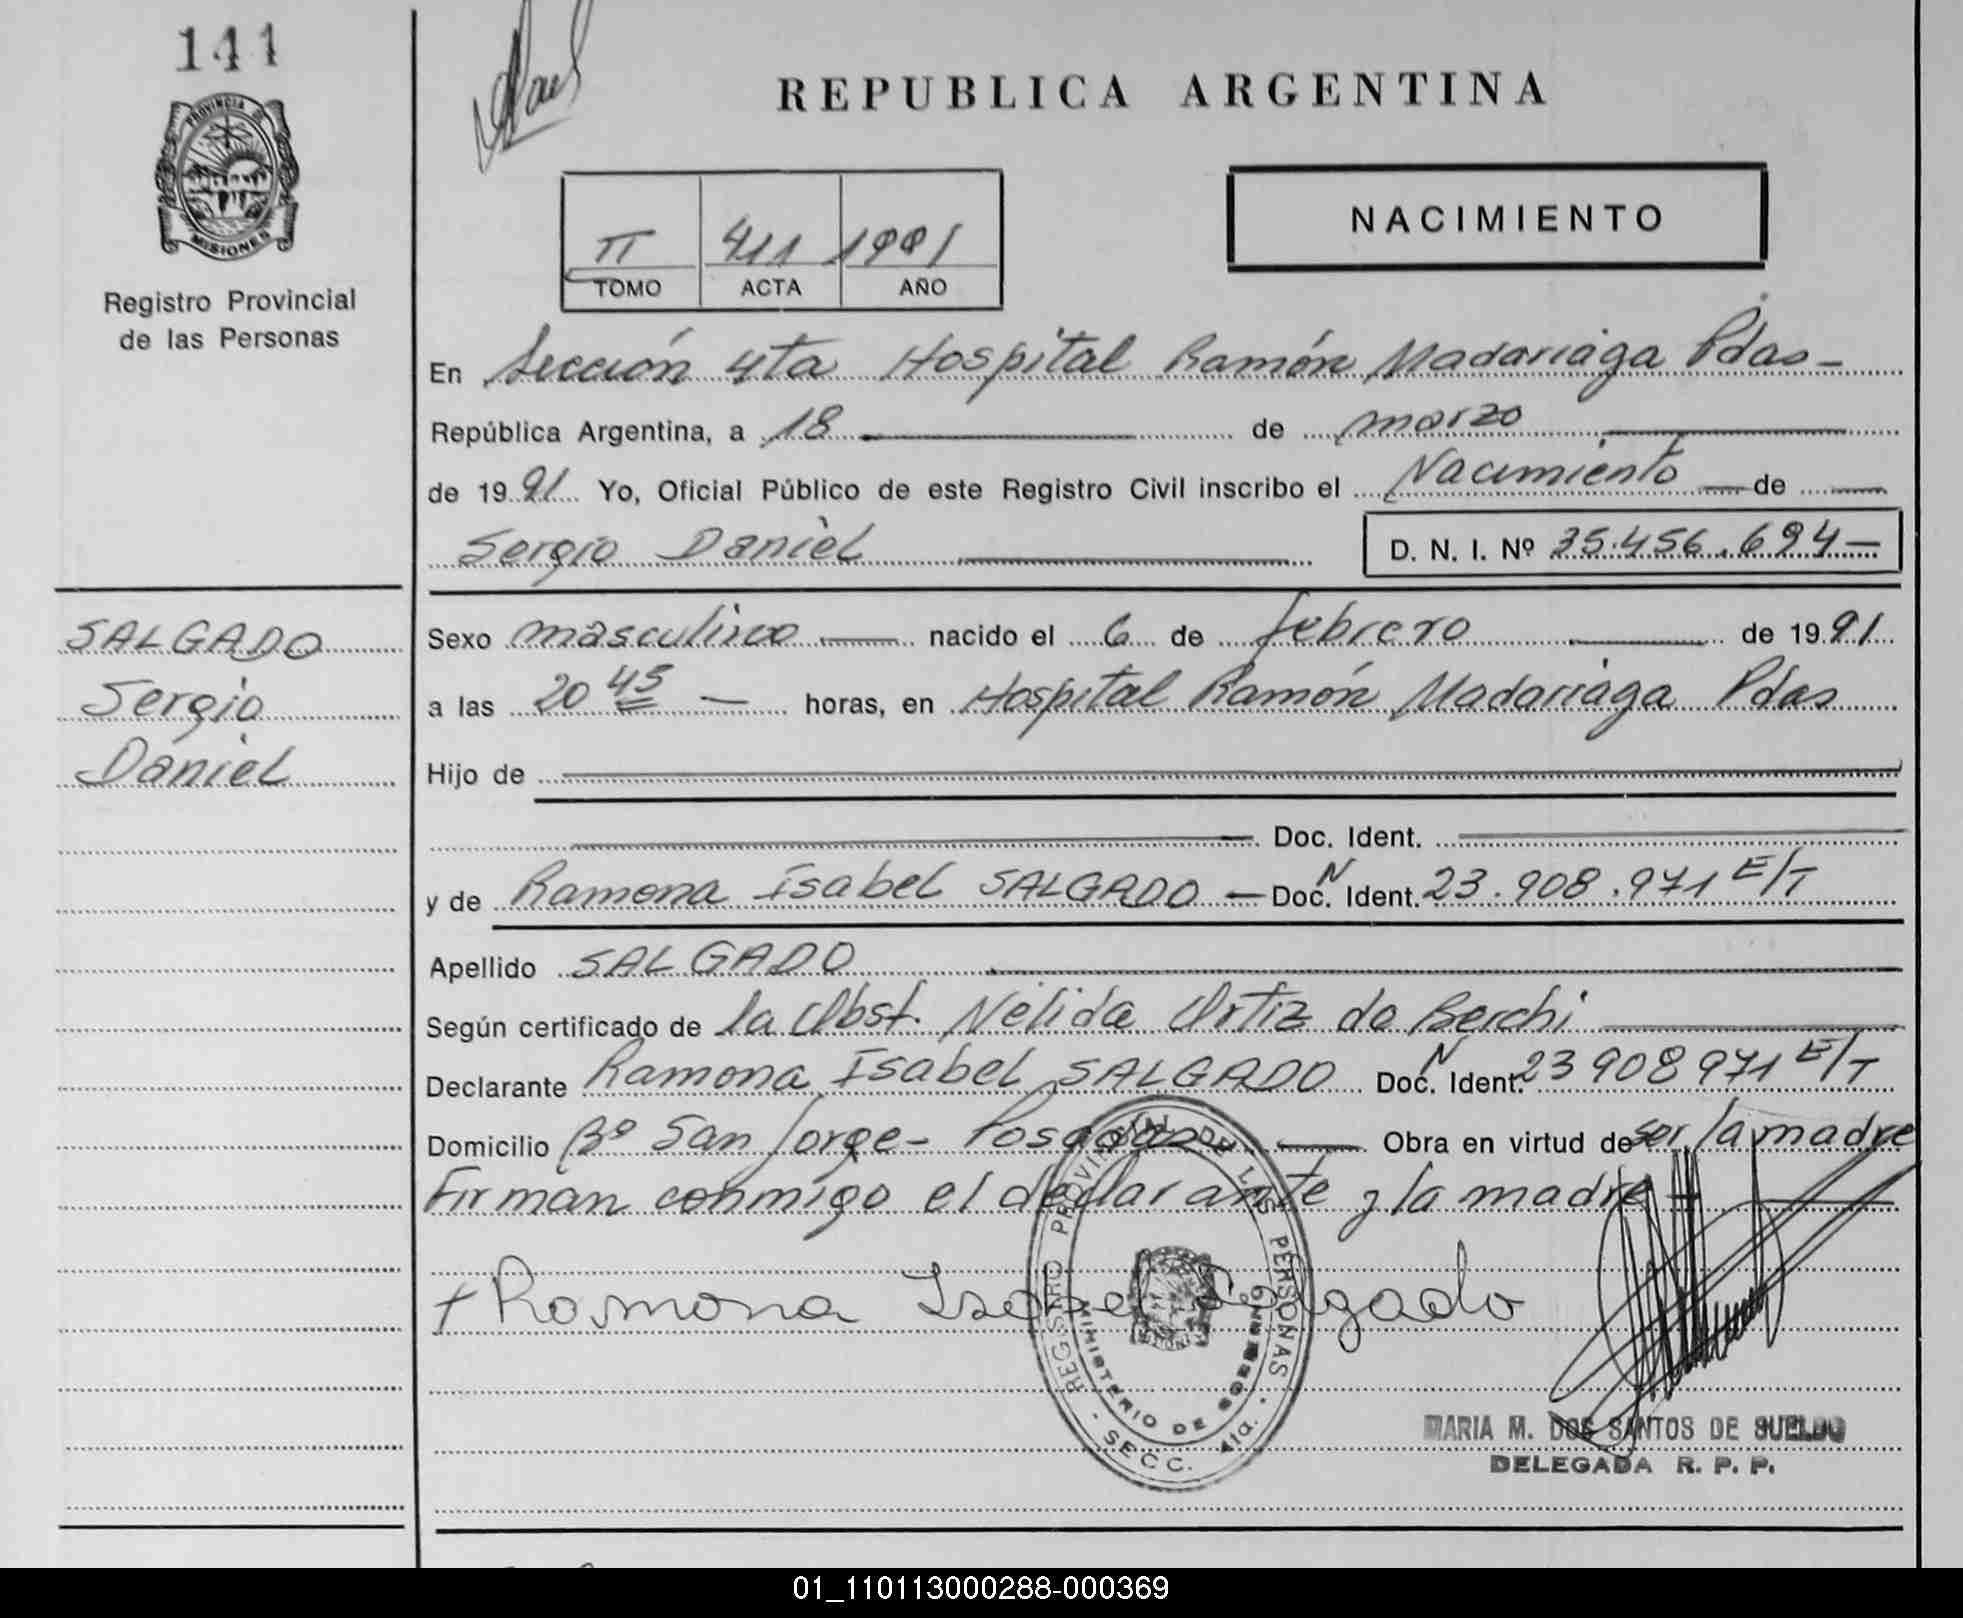 141
PROVINCIA DE
MISIONES
Registro Provincial
de las Personas
REPUBLICA ARGENTINA
II 411 1991
TOMO ACTA AÑO
NACIMIENTO
En Sección 4ta Hospital Ramón Madariaga Pdas-
República Argentina, a 18 de marzo
de 1991 Yo, Oficial Público de este Registro Civil inscribo el Nacimiento de
Sergio Daniel D. N. I. Nº 35.456.694-
SALGADO
Sergio
Daniel
Sexo masculino nacido el 6 de febrero de 1991
a las 20 45 horas, en Hospital Ramón Madariaga Pdas
Hijo de
Doc. Ident.
y de Ramona Isabel SALGADO - Doc. N Ident. 23.908.971 E/T
Apellido SALGADO
Según certificado de la Obst. Nélida Ortiz de Berchi
Declarante Ramona Isabel SALGADO Doc. N Ident. 23 908 971 E/T
Domicilio Bº San Jorge- Posadas Obra en virtud de ser la madre
Firman conmigo el declarante y la madre-
+ Ramona Isabel Salgado
REGISTRO PROVINCIAL DE LAS PERSONAS
MINISTERIO DE GOBIERNO
- SECC. 4ta. -
MARIA M. DOS SANTOS DE SUELDO
DELEGADA R. P. P.
01_110113000288-000369